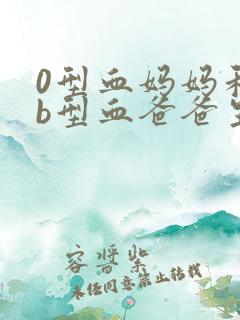 0型血妈妈和
b型血爸爸生
容誉紫
未经同意禁止转载